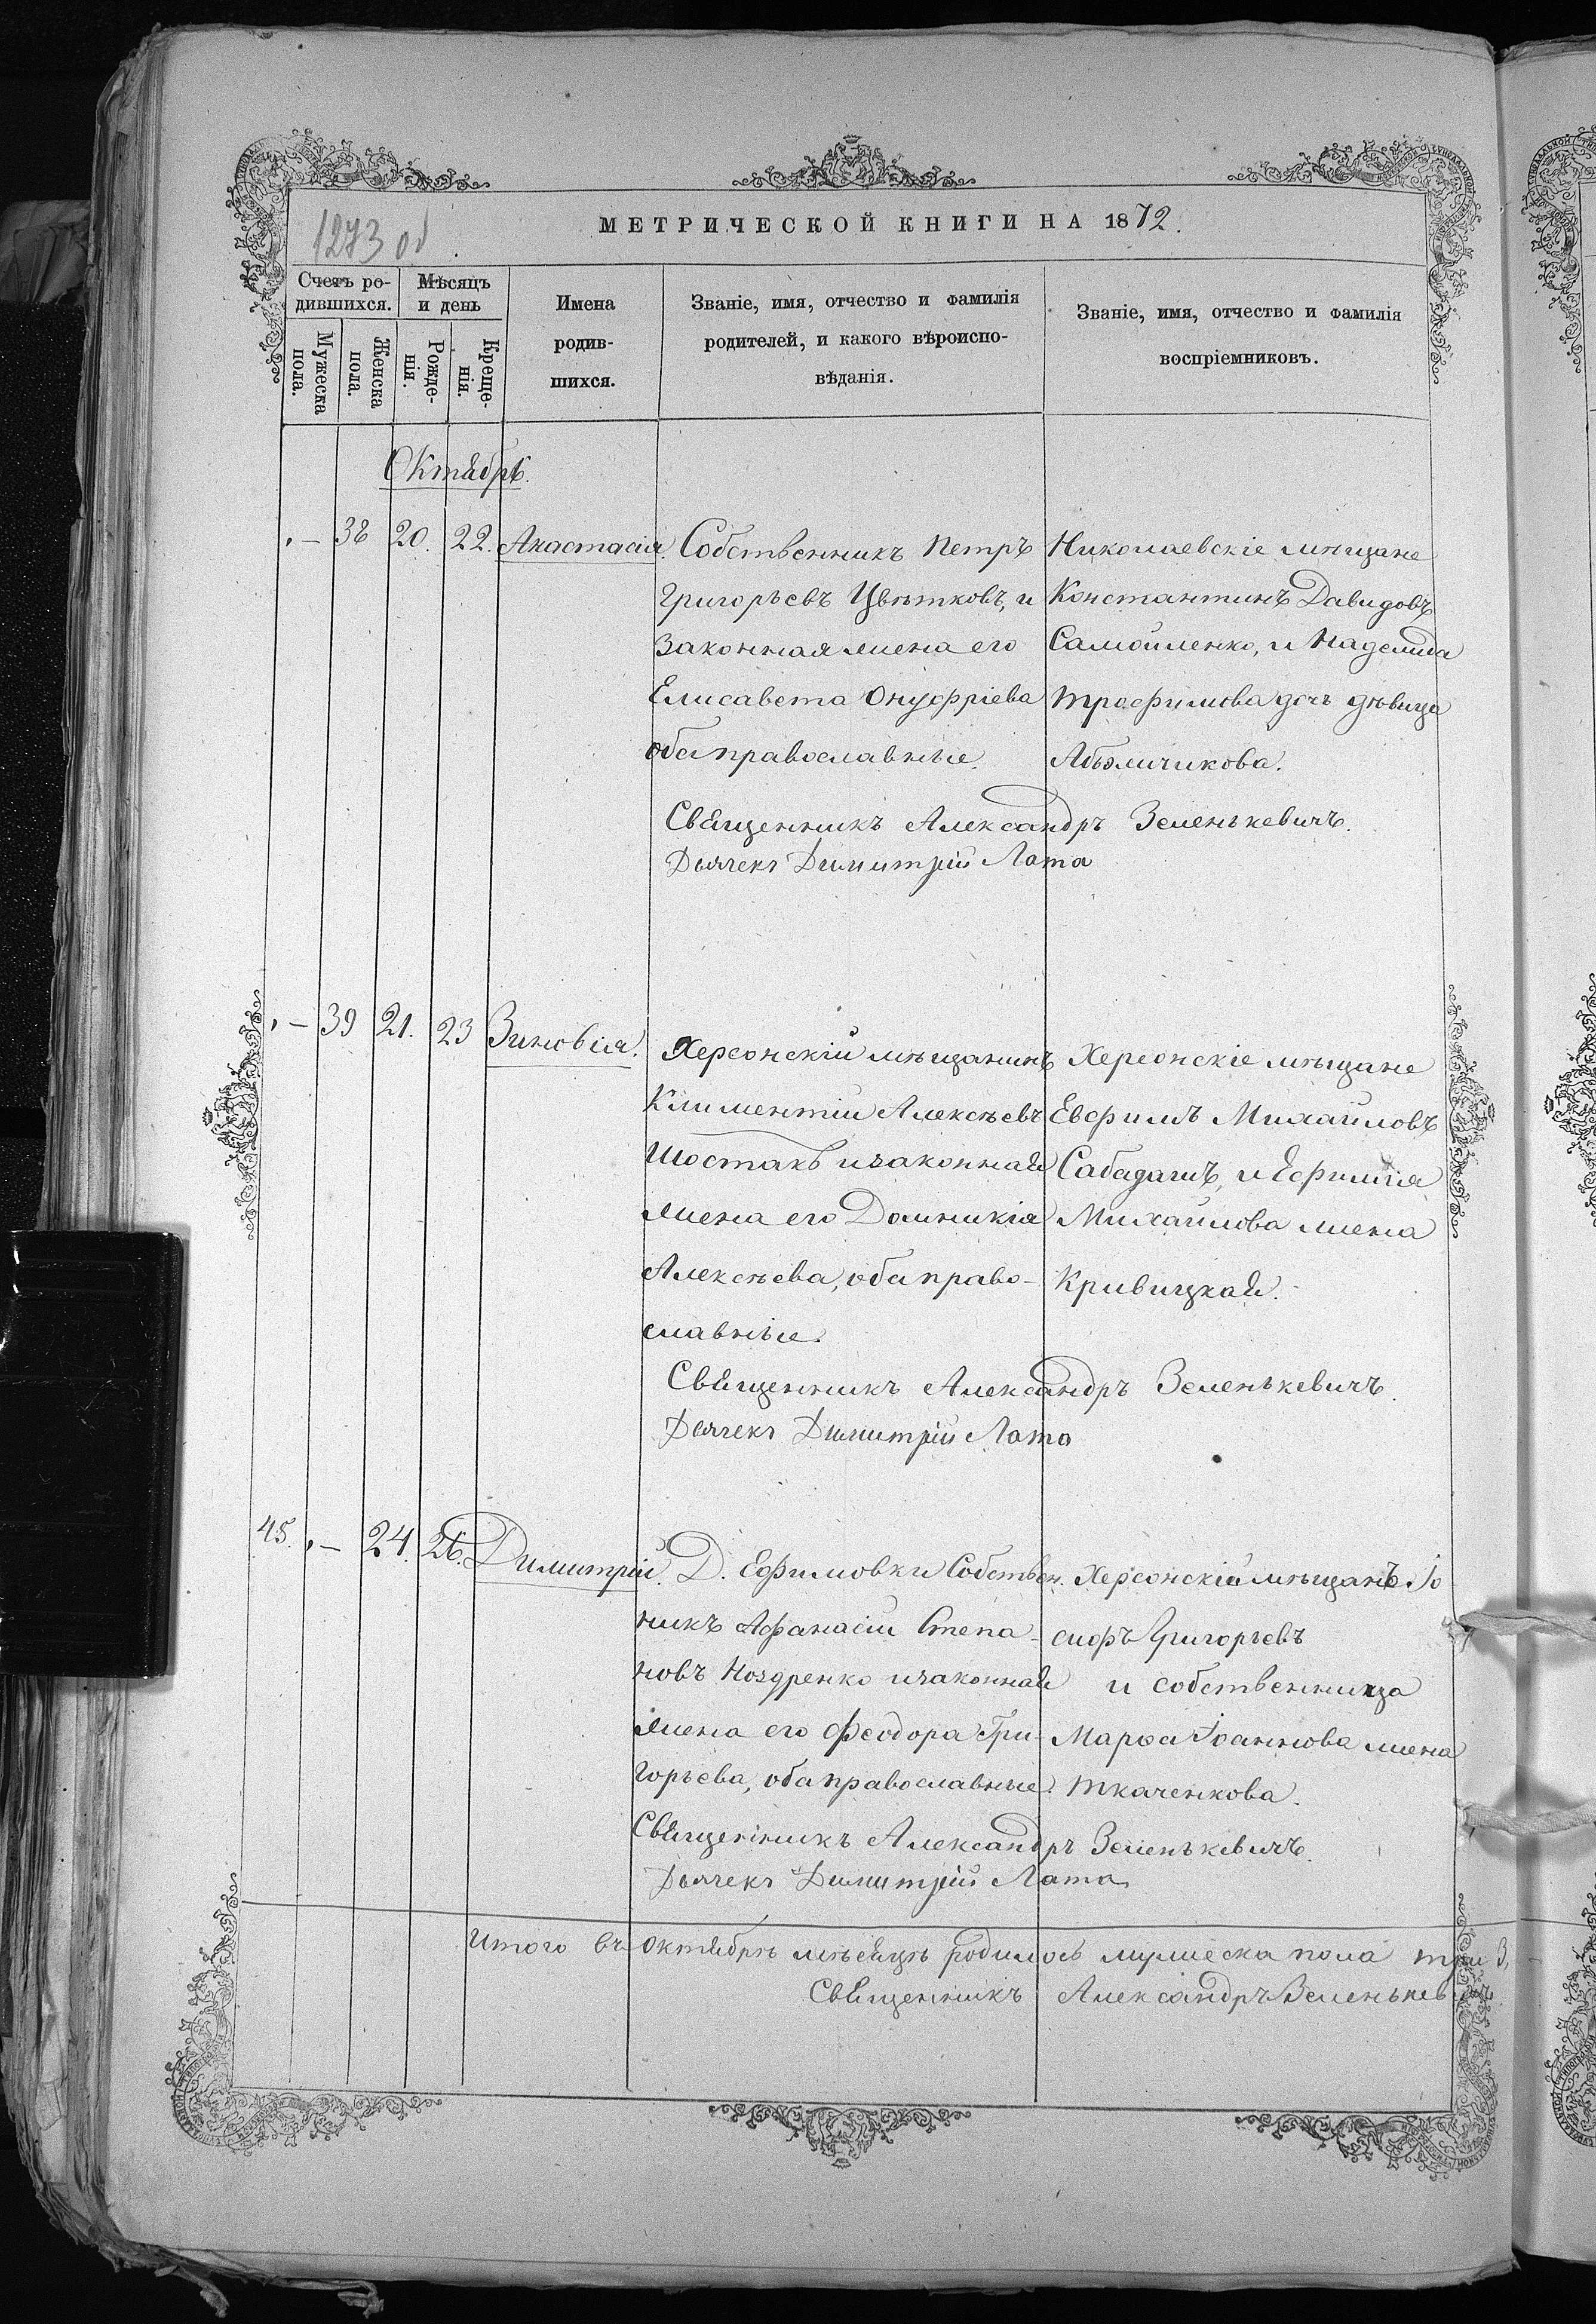 1273 об
МЕТРИЧЕСКОЙ КНИГИ НА 1872.
Счетъ ро-
дившихся.
Мѣсяцъ
и день
Имена
родив-
шихся.
Званіе, имя, отчество и фамилія
родителей, и какого вѣроиспо-
вѣданія.
Званіе, имя, отчество и фамилія
воспріемниковъ.
Мужеска
пола.
Женска
пола.
Рожде-
нія.
Креще-
нія.
Октябрь.
„ — 38 20. 22. Анастасія. Собственникъ Петръ Николаевскіе мѣщане
Григорьевъ Цвѣтковъ, и Константинъ Давидовъ
законная жена его Самойленко, и Надежда
Елисавета Онуфріева Трофимова дочь дѣвица
оба православные.
Священникъ Александръ Зеленькевичъ.
Дьячекъ Димитрій Лата
„ — 39 21. 23 Зиновія. Херсонскій мѣщанинъ Херсонскіе мѣщане
Климентій Алексѣевъ Евфимъ Михайловъ
Шостакъ и законная Сабадашъ, и Ефимія
жена его Домникія Михайлова жена
Алексѣева, оба право- Кривицкая.
славные.
Священникъ Александръ Зеленькевичъ.
Дьячекъ Димитрій Лата
45. „ — 24. 26. Димитрій. Д. Ефимовки Собствен. Херсонскій мѣщанъ Іо
никъ Афанасій Степа- сифъ Григорьевъ
новъ Ноздренко и законная и собственница
жена его Феодора Гри- Марфа Іоаннова жена
горьева, оба православные. Ткаченкова.
Священникъ Александръ Зеленькевичъ.
Дьячекъ Димитрій Лата
Итого въ Октябрѣ мѣсяцѣ родилось мужеска пола три 3,
Священникъ Александръ Зеленькевичъ